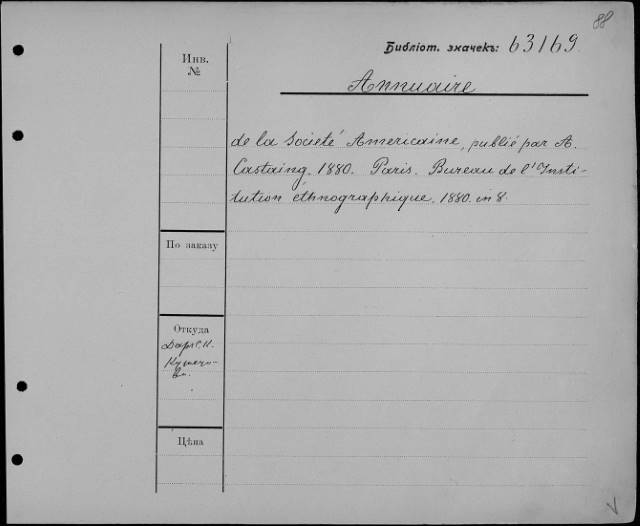 88
Библіот. значекъ: 63169
Инв.
№
Annuaire
de la Societé Americaine, publié par A.
Castaing. 1880. Paris. Bureau de l'Insti-
tution éthnographique. 1880. in 8.
По заказу
Откуда
Даръ С. К.
Кузнецо-
ва.
Цѣна